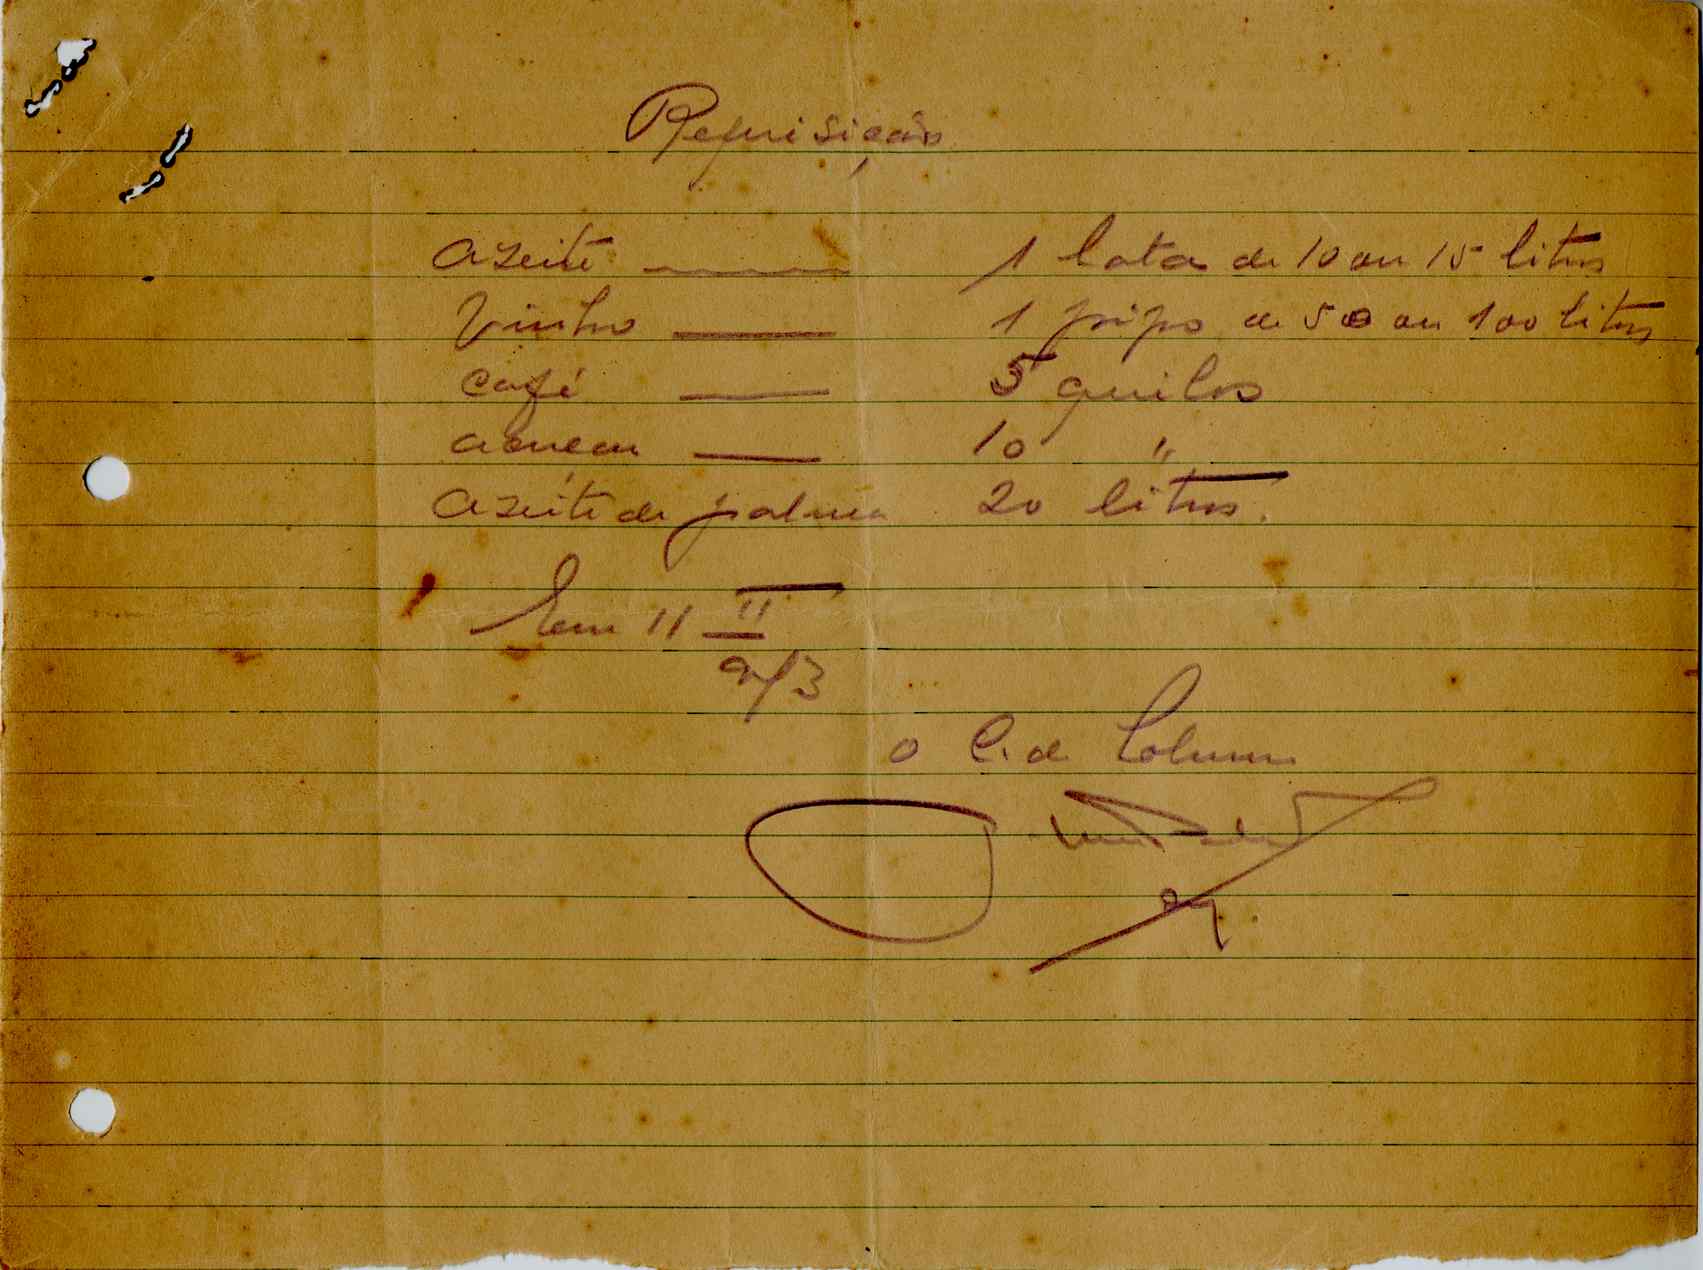 Requisição
Azeite 1 lata de 10 ou 15 litros
Vinho 1 pipo de 50 ou 100 litros
Café 5 quilos
Açucar 10 "
Azeite de palma 20 litros.
Em 11 II
943
O C. de Coluna